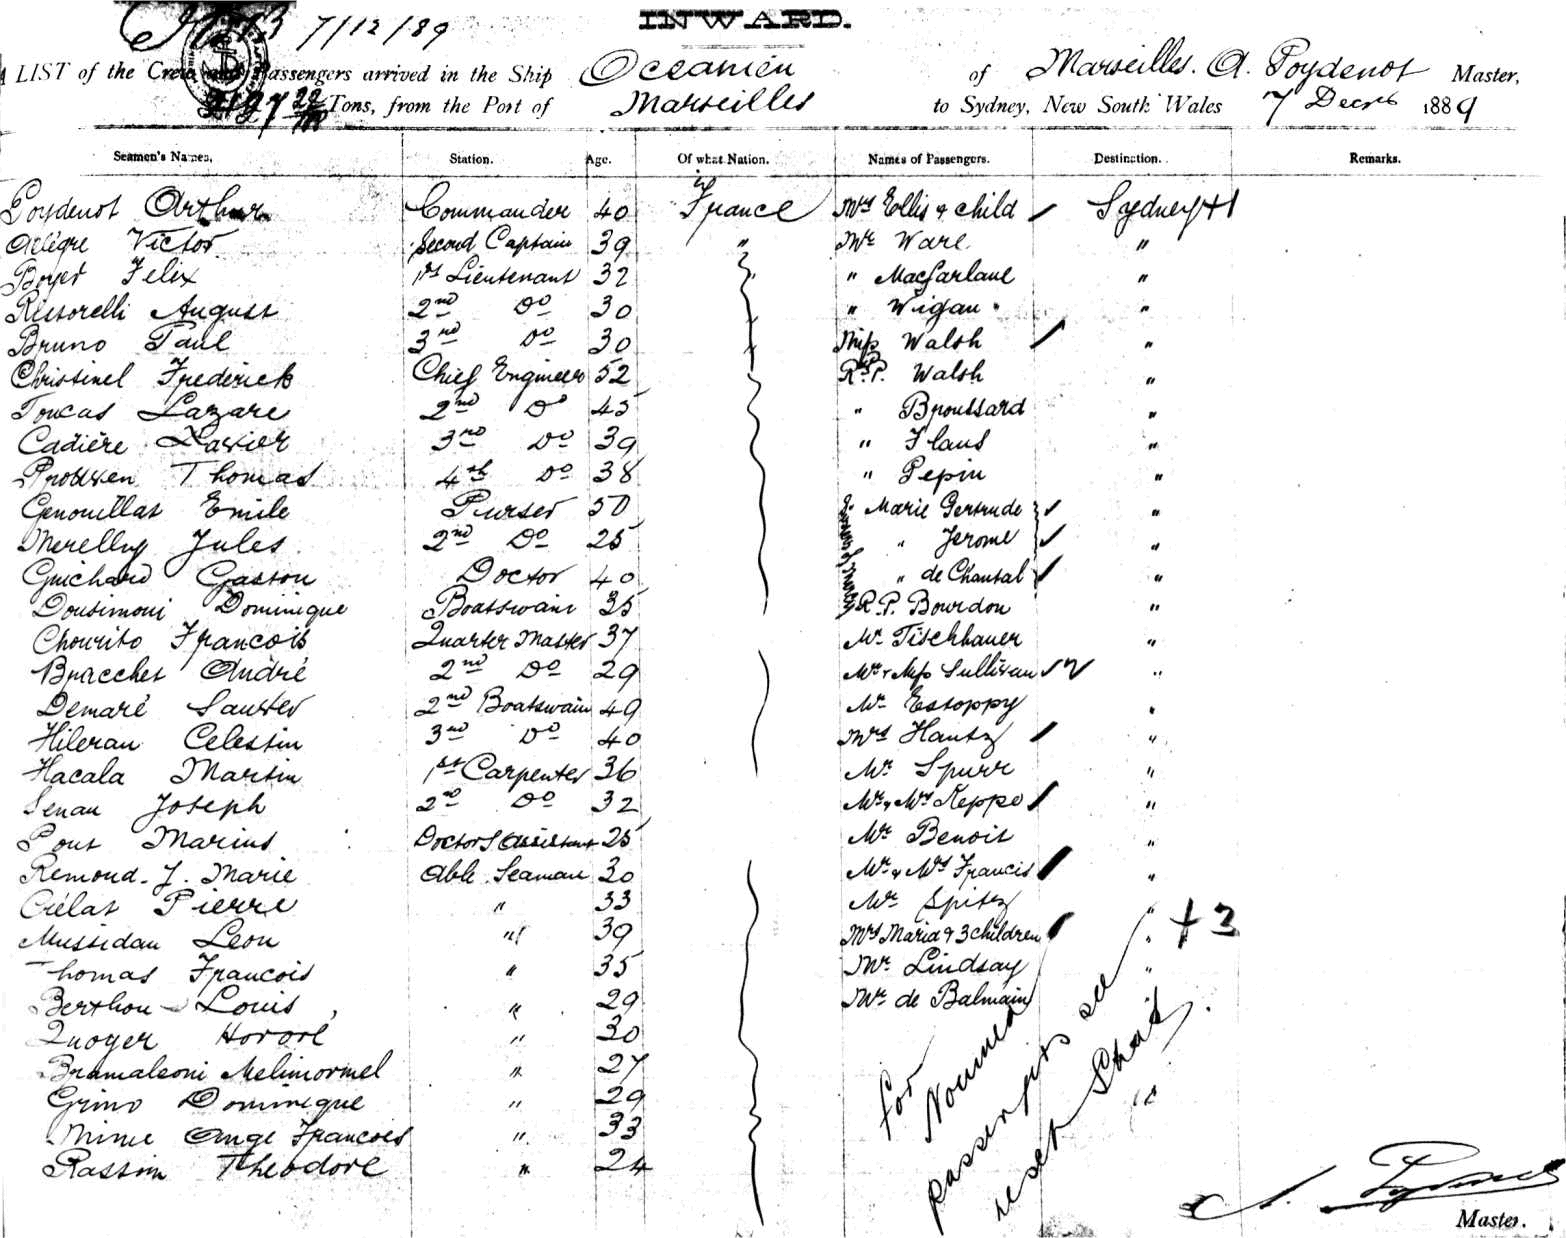 7/12/89
INWARD.
A LIST of the Crew and Passengers arrived in the Ship Océanien of Marseilles. A. Poydenot Master,
Tons, from the Port of Marseilles to Sydney, New South Wales 7 Decr 1889
Seamen's Names. Station. Age. Of what Nation. Names of Passengers. Destination. Remarks.
Poydenot Arthur Commander 40 France Mrs Ellis & child Sydney +1
Allègre Victor Second Captain 39 " Mr Ware "
Boyer Felix 1st Lieutenant 32 " Macfarlane "
August 2nd Do 30 " Wigan "
Bruno Paul 3rd Do 30 Miss Walsh "
Christinel Frederick Chief Engineer 52 R.P. Walsh "
Toucas Lazare 2nd Do 45 " Broussard "
Cadière Xavier 3rd Do 39 " Flaus "
Thomas 4th Do 38 " Pepin "
Genouillat Emile Purser 50 Marie Gertrude "
Merellny Jules 2nd Do 25 " Jerome "
Guichard Gaston Doctor 40 " de Chantal "
Dousimoni Dominique Boatswain 35 R.P. Bourdon "
Chourito Francois Quarter Master 37 Mr Tischbauer "
Bracchet André 2nd Do 29 Mr & Miss Sullivan 2 "
Demaré 2nd Boatswain 49 Mr Estoppy "
Hileran Celestin 3rd Do 40 Mrs Hautz "
Hacala Martin 1st Carpenter 36 Mr Spurr "
Senau Joseph 2nd Do 32 Mr & Mrs Keppo "
Pont Marius Doctors Assistant 25 Mr Benoit "
Remond J. Marie Able Seaman 30 Mr & Mrs Francis "
Crélat Pierre " 33 Mr Spitz "
Mussidan Leon " 39 Mrs Maria & 3 children " +3
Thomas Francois " 35 Mr Lindsay "
Berthou Louis " 29 Mr de Balmain "
Quoyer Honoré " 30
Bramaleoni " 27
Grino Dominique " 29
Mime Ange Francois " 33
Rassim Theodore " 24
for
Noumea
passengers see
next Sheet
Master.